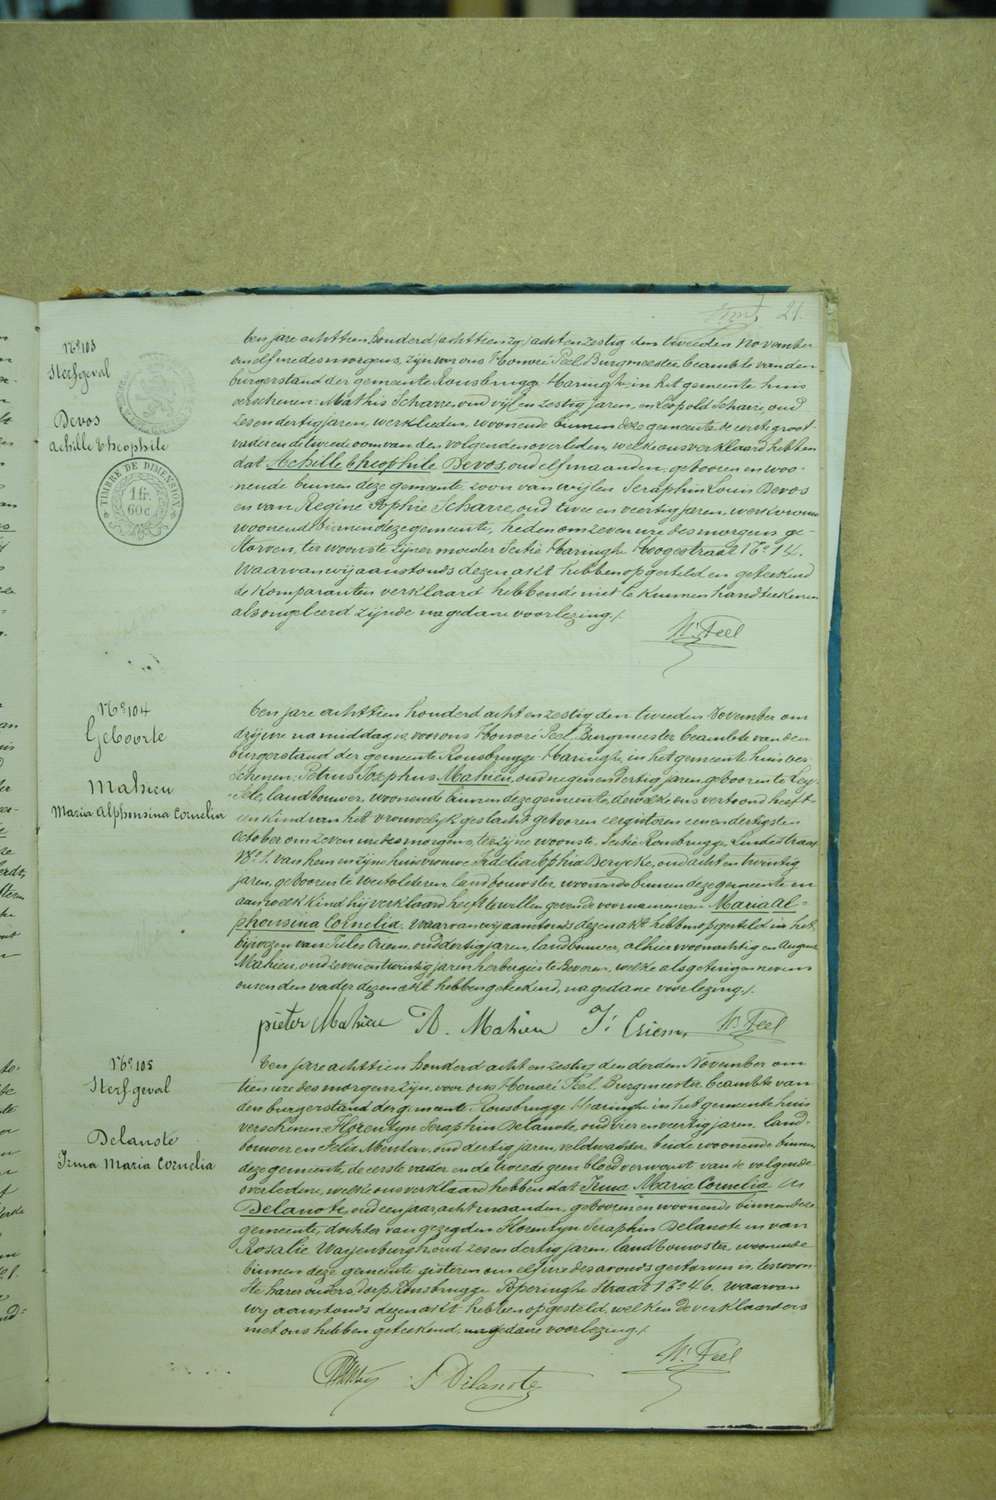 21.
N° 103
Sterfgeval
Devos
Achille Theophile
TIMBRE DE DIMENSION
1 fr.
60 c
Ten jare achttien honderd (achttienzg) acht en zestig den tweeden November
om elf ure des morgens, zijn voor ons Honoré Feel Burgmeester, beambte van den
burgerstand der gemeente Rousbrugge-Haringhe, in het gemeente huis
verschenen: Mathis Scharre, oud vijf en zestig jaren, en Leopold Scharre, oud
zes en dertig jaren, werklieden, woonende binnen deze gemeente, de eerste groot
vader en de tweede oom van den volgenden overleden, welke ons verklaard hebben
dat Achille Theophile Devos, oud elf maanden, geboren en woo-
nende binnen deze gemeente, zoon van wijlen Seraphin Louis Devos
en van Regine Sophie Scharre, oud twee en veertig jaren, werkvrouw
woonende binnen deze gemeente, heden om zeven ure des morgens ge-
storven, ter woonste zijner moeder Sectie Haringhe Hoogestraat N° 14.
Waarvan wij aanstonds dezen akt hebben opgesteld en geteekend
de komparanten verklaard hebbende niet te kunnen handteekenen
als ongeleerd zijnde na gedane voorlezing./.
H. Feel
N° 104
Geboorte
Mahieu
Maria Alphonsina Cornelia
Ten jare achttien honderd acht en zestig den tweeden November om
drij ure na middag is voor ons Honoré Feel Burgmeester beambte van den
burgerstand der gemeente Rousbrugge-Haringhe, in het gemeente huis ver-
schenen: Petrus Josephus Mahieu, oud negen en dertig jaren geboren te Ley-
sele, landbouwer, woonende binnen deze gemeente, dewelke ons vertoond heeft
een kind van het vrouwelijk geslacht geboren eergisteren eenendertigsten
October om zeven ure des morgens, ter zijne woonste, Sectie Rousbrugge, Lindestraat
N° 1, van hem en zijne huisvrouwe Fidelia Sophia Derycke, oud acht en twintig
jaren, geboren te Westvleteren, landbouwster, woonende binnen deze gemeente en
aan welk kind hij verklaard heeft te willen geven de voornamen van Maria Al-
phonsina Cornelia. Waarvan wij aanstonds dezen akt hebben opgesteld in het
bijwezen van Jules Criem, oud dertig jaren, landbouwer, alhier woonachtig en August
Mahieu, oud zeven en twintig jaren herbergier te Beveren, welke als getuigen nevens
ons en den vader dezen akt hebben geteekend, na gedane voorlezing./.
pieter Mahieu A. Mahieu J. Criem H. Feel
N° 105
Sterfgeval
Delanote
Irma Maria Cornelia
Ten jare achttien honderd acht en zestig den derden November om
tien ure des morgens zijn, voor ons Honoré Feel, Burgmeester, beambte van
den burgerstand der gemeente Rousbrugge Haringhe in het gemeente huis
verschenen: Florentyn Seraphin Delanote, oud vier en veertig jaren, land-
bouwer en Felix Menton, oud dertig jaren, veldwachter, beide woonende binnen
deze gemeente, de eerste vader en de tweede geen bloedverwant van de volgende
overledene, welke ons verklaard hebben dat Irma Maria Cornelia
Delanote, oud een jaar acht maanden, geboren en woonende binnen deze
gemeente, dochter van gezegden Florentyn Seraphin Delanote en van
Rosalie Waeyenburgh, oud zes en dertig jaren landbouwster, woonende
binnen deze gemeente gisteren om elf ure des avonds gestorven is, ter woon-
ste harer ouders, dorp Rousbrugge Poperinghe straat N° 46. Waarvan
wij aanstonds dezen akt hebben opgesteld, welken de verklaarders
met ons hebben geteekend, na gedane voorlezing./.
H. Feel
F Delanote